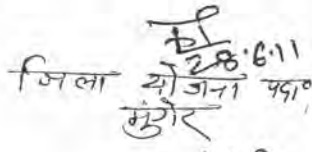 28.6.11
जिला योजना पदा०
मुंगेर